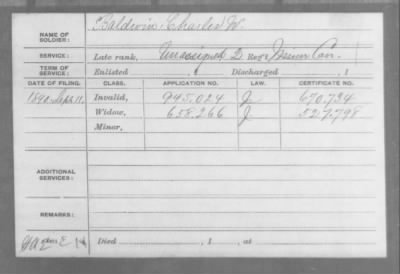 NAME OF SOLDIER: Baldwin, Charles W.
SERVICE: Late rank, Unassigned D Reg't Tenn Cav.
TERM OF SERVICE: Enlisted , 1 Discharged , 1
DATE OF FILING. CLASS. APPLICATION NO. LAW. CERTIFICATE NO.
1890 Sept. 11, Invalid, 945.024 J 670,734
Widow, 658.266 J 527,798
Minor,
ADDITIONAL SERVICES:
REMARKS:
Died , 1 , at